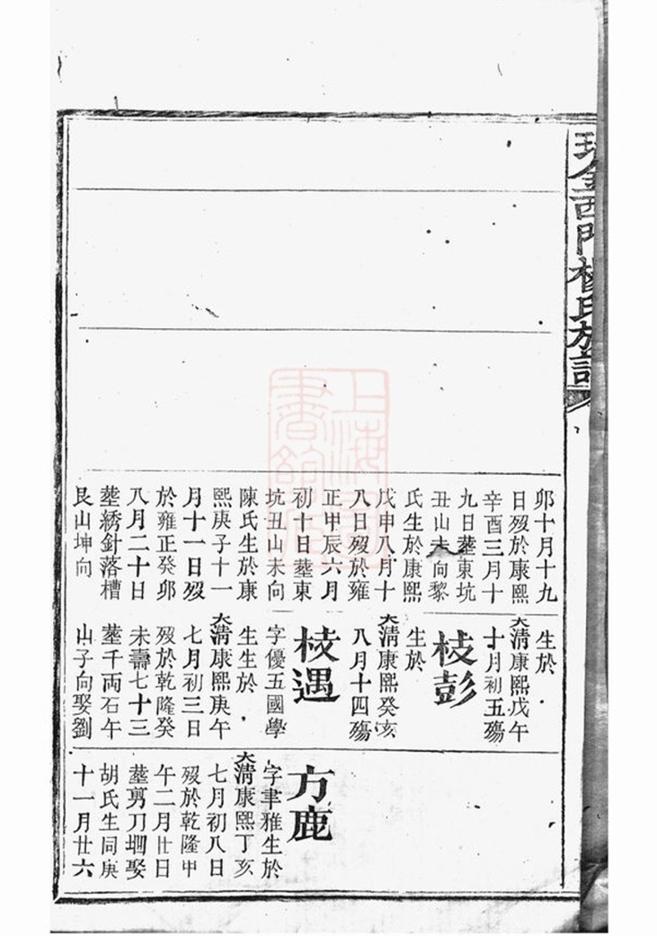 金西門楊氏族譜
卯十月十九
日歿於康熙
辛酉三月十
九日塟東坑
丑山未向黎
氏生於康熙
戊申八月十
八日歿於雍
正甲辰六月
初十日塟東
坑丑山未向
陳氏生於康
熙庚子十一
月十一日歿
於雍正癸卯
八月二十日
塟綉針落槽
艮山坤向
生於
大清康熙戊午
十月初五殤
枝彭
生於
大清康熙癸亥
八月十四殤
枝遇
字優五國學
生生於
大清康熙庚午
七月初三日
歿於乾隆癸
未壽七十三
塟千両石午
山子向娶劉
方鹿
字聿雅生於
大清康熙丁亥
七月初八日
歿於乾隆甲
午二月廿日
塟剪刀堋娶
胡氏生同庚
十一月廿六